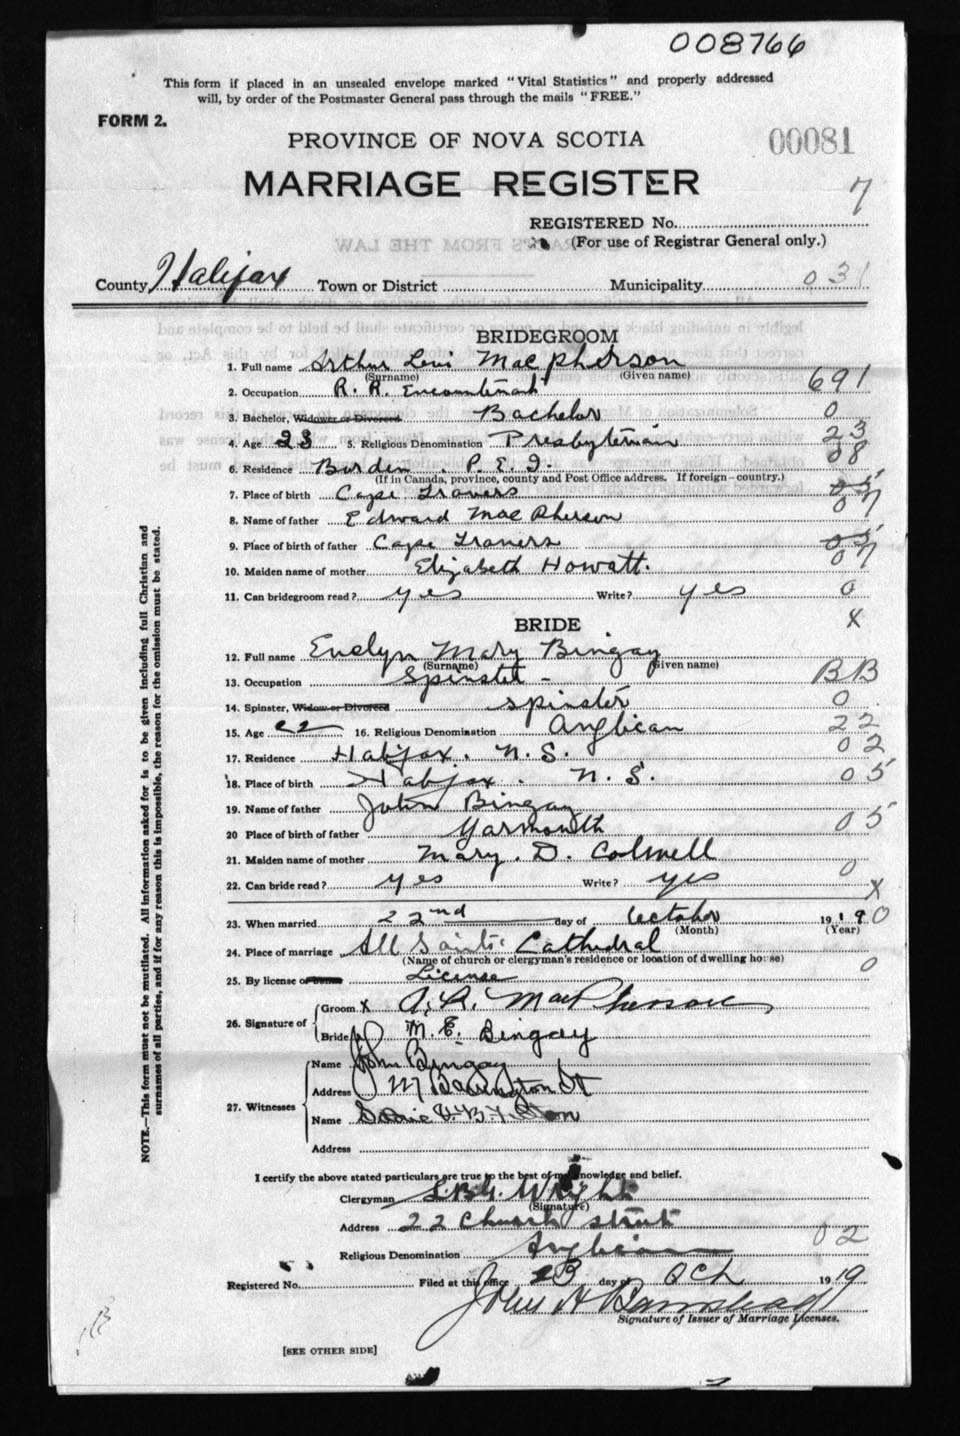 008766
This form if placed in an unsealed envelope marked "Vital Statistics" and properly addressed
will, by order of the Postmaster General pass through the mails "FREE."
FORM 2.
PROVINCE OF NOVA SCOTIA
00081
MARRIAGE REGISTER
7
REGISTERED No.
(For use of Registrar General only.)
County Halifax Town or District Municipality 031
BRIDEGROOM
1. Full name Arthur Levi MacPherson
(Surname) (Given name)
2. Occupation R. R. 691
3. Bachelor, Widower or Divorced Bachelor 0
4. Age 23 5. Religious Denomination Presbyterian 23
6. Residence Borden. P. E. I. 08
(If in Canada, province, county and Post Office address. If foreign - country.)
7. Place of birth Cape Travers 05 07
8. Name of father Edward MacPherson
9. Place of birth of father Cape Travers 05 07
10. Maiden name of mother Elizabeth Howatt.
11. Can bridegroom read? yes Write? yes 0
BRIDE X
12. Full name Evelyn Mary Bingay
(Surname) (Given name)
13. Occupation Spinster - BB
14. Spinster, Widow or Divorced spinster 0
15. Age 22 16. Religious Denomination Anglican 22
17. Residence Halifax. N. S. 02
18. Place of birth Halifax. N. S. 05
19. Name of father John Bingay
20 Place of birth of father Yarmouth 05
21. Maiden name of mother Mary. D. Colwell
22. Can bride read? yes Write? yes 0 X
23. When married 22nd day of October 1919 0
(Month) (Year)
24. Place of marriage All Saints Cathedral
(Name of church or clergyman's residence or location of dwelling house)
25. By license or banns License 0
26. Signature of Groom X MacPherson
Bride M. E. Bingay
27. Witnesses Name John Bingay
Address Barrington St
Name
Address
I certify the above stated particulars are true to the best of my knowledge and belief.
Clergyman Wright
(Signature)
Address 22 Church street
Religious Denomination Anglican 02
Registered No. Filed at this office 23 day of Oct 1919
John H Barnstead
Signature of Issuer of Marriage Licenses.
[SEE OTHER SIDE]
NOTE.—This form must not be mutilated. All information asked for is to be given including full Christian and
surnames of all parties, and if for any reason this is impossible, the reason for the omission must be stated.